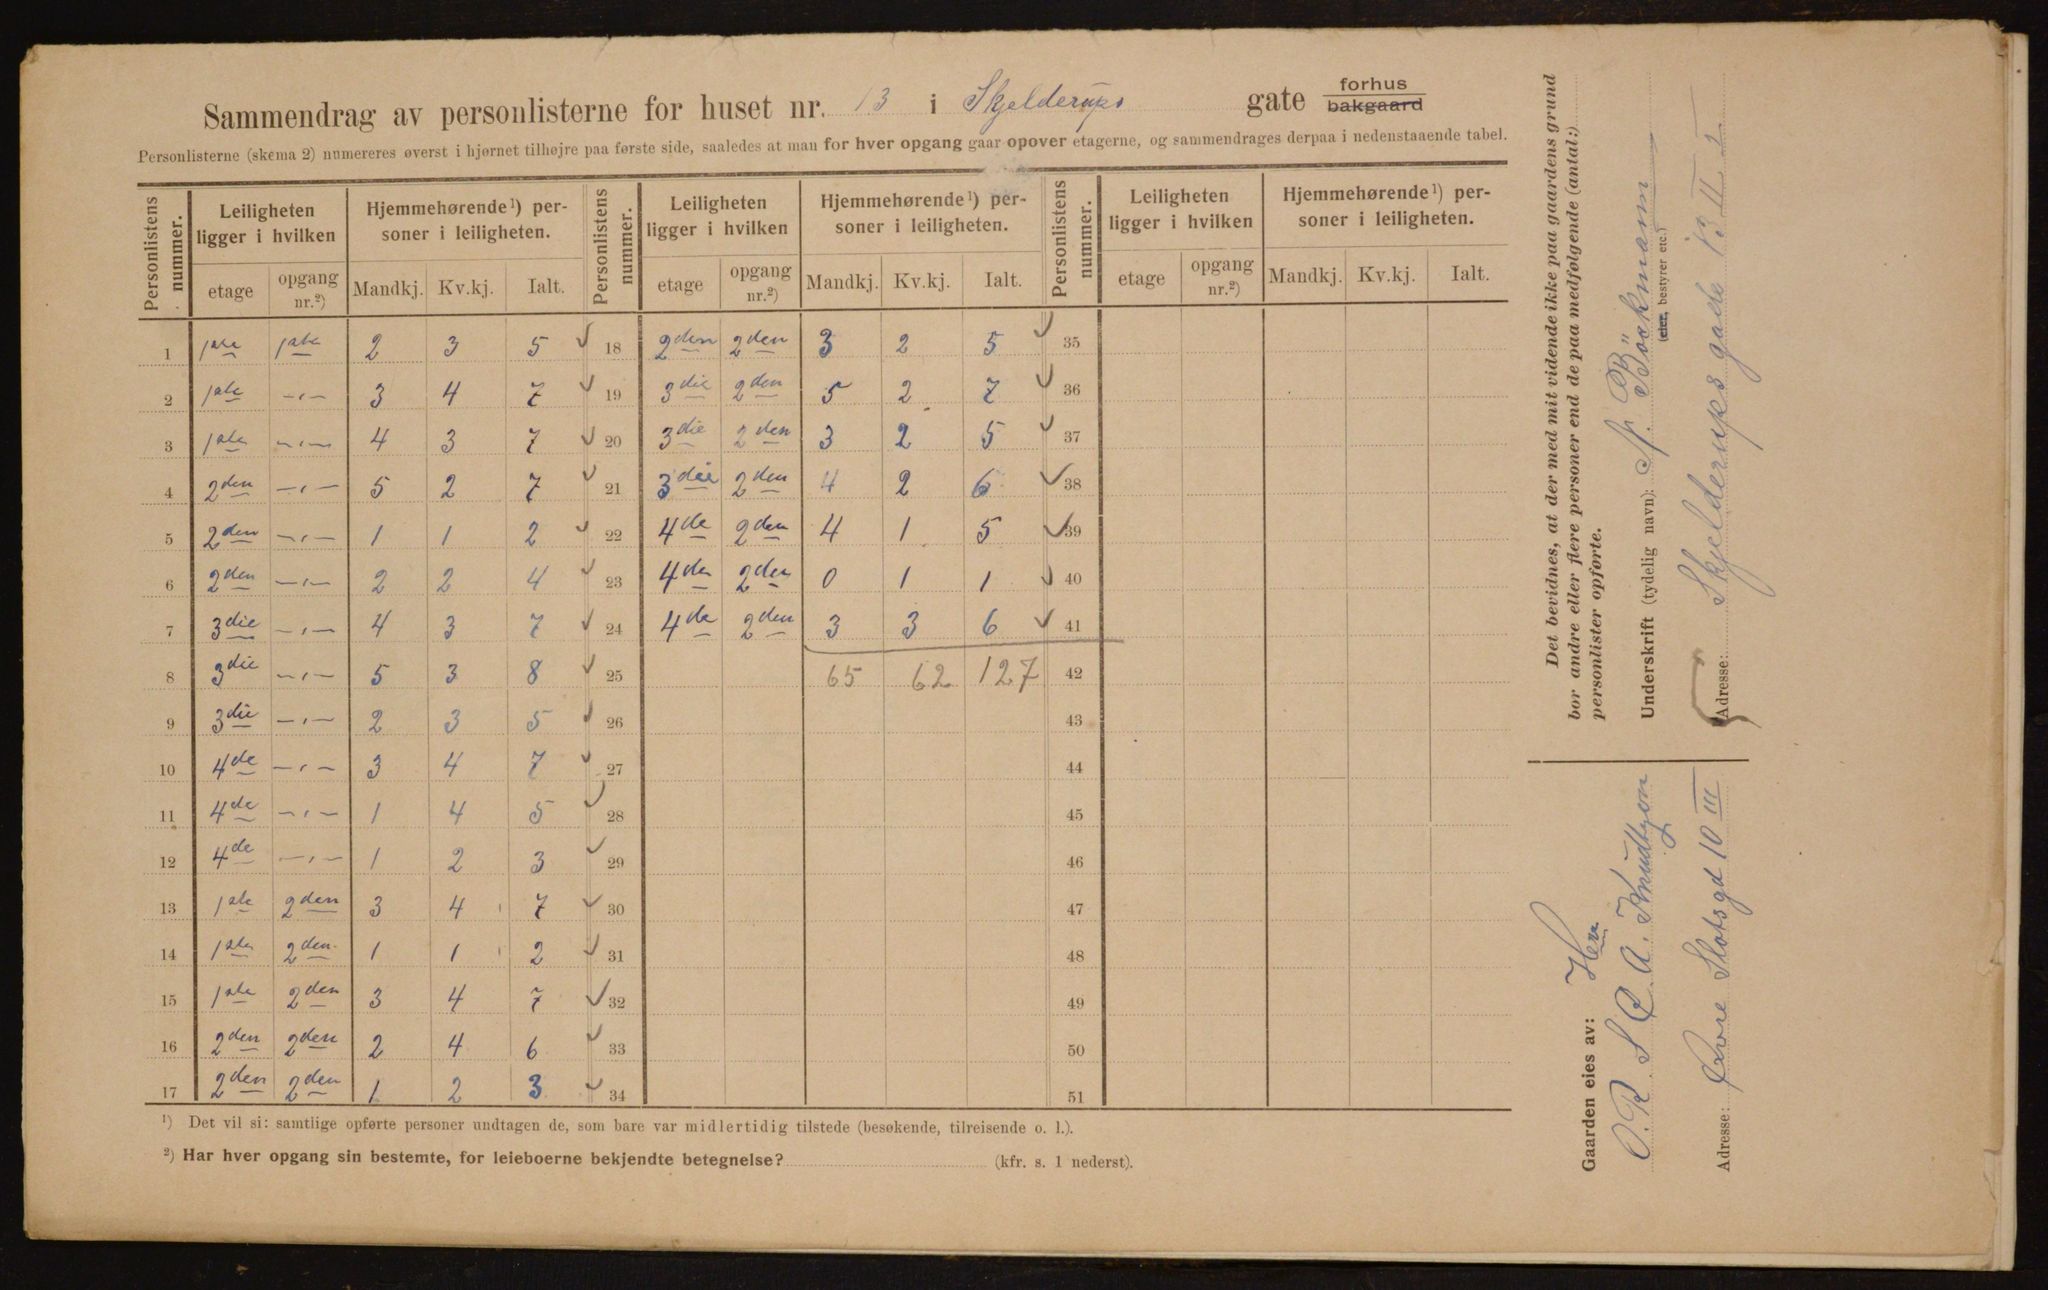 Sammendrag av personlisterne for huset nr. 13 i Skjelderups gate forhus
bakgaard
Personlisterne (skema 2) numereres øverst i hjørnet tilhøjre paa første side, saaledes at man for hver opgang gaar opover etagerne, og sammendrages derpaa i nedenstaaende tabel.
Personlistens nummer. Leiligheten ligger i hvilken Hjemmehørende¹) personer i leiligheten. Personlistens nummer. Leiligheten ligger i hvilken Hjemmehørende¹) personer i leiligheten. Personlistens nummer. Leiligheten ligger i hvilken Hjemmehørende¹) personer i leiligheten.
etage opgang nr.²) Mandkj. Kv.kj. Ialt. etage opgang nr.²) Mandkj. Kv.kj. Ialt. etage opgang nr.²) Mandkj. Kv.kj. Ialt.
1 1ste 1ste 2 3 5 ✓ 18 2den 2den 3 2 5 ✓ 35
2 1ste –„– 3 4 7 ✓ 19 3die 2den 5 2 7 ✓ 36
3 1ste –„– 4 3 7 ✓ 20 3die 2den 3 2 5 ✓ 37
4 2den –„– 5 2 7 ✓ 21 3die 2den 4 2 6 ✓ 38
5 2den –„– 1 1 2 ✓ 22 4de 2den 4 1 5 ✓ 39
6 2den –„– 2 2 4 ✓ 23 4de 2den 0 1 1 ✓ 40
7 3die –„– 4 3 7 ✓ 24 4de 2den 3 3 6 ✓ 41
8 3die –„– 5 3 8 ✓ 25 65 62 127 42
9 3die –„– 2 3 5 ✓ 26 43
10 4de –„– 3 4 7 ✓ 27 44
11 4de –„– 1 4 5 ✓ 28 45
12 4de –„– 1 2 3 ✓ 29 46
13 1ste 2den 3 4 7 ✓ 30 47
14 1ste 2den 1 1 2 ✓ 31 48
15 1ste 2den 3 4 7 ✓ 32 49
16 2den 2den 2 4 6 ✓ 33 50
17 2den 2den 1 2 3 ✓ 34 51
¹) Det vil si: samtlige opførte personer undtagen de, som bare var midlertidig tilstede (besøkende, tilreisende o. l.).
²) Har hver opgang sin bestemte, for leieboerne bekjendte betegnelse? (kfr. s. 1 nederst).
Det bevidnes, at der med mit vidende ikke paa gaardens grund
bor andre eller flere personer end de paa medfølgende (antal:)
personlister opførte.
Underskrift (tydelig navn): Böckmann
(eier, bestyrer etc.)
Adresse: Skjelderups gade 13 II
Gaarden eies av: Herr
O. R S Q A. Knudtzon
Adresse: Øvre Slotsgd 10 III